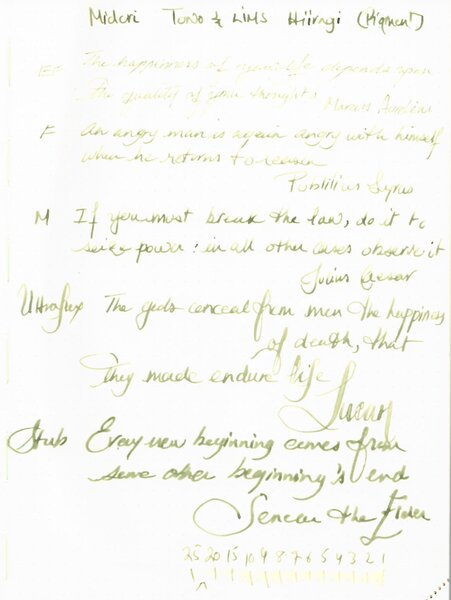 Midori Tono & LiMS Hiiragi (Pigment)
EF The happiness of your life depends upon
the quality of your thoughts Marcus Aurelius
F An angry man is again angry with himself
when he returns to reason
Publilius Syrus
M If you must break the law, do it to
seize power: in all other cases observe it
Julius Caesar
Ultraflex The gods conceal from men the happiness
of death, that
they made endure life
Lucan
Stub Every new beginning comes from
some other beginning's end
Senecau the Elder
25 20 15 10 9 8 7 6 5 4 3 2 1